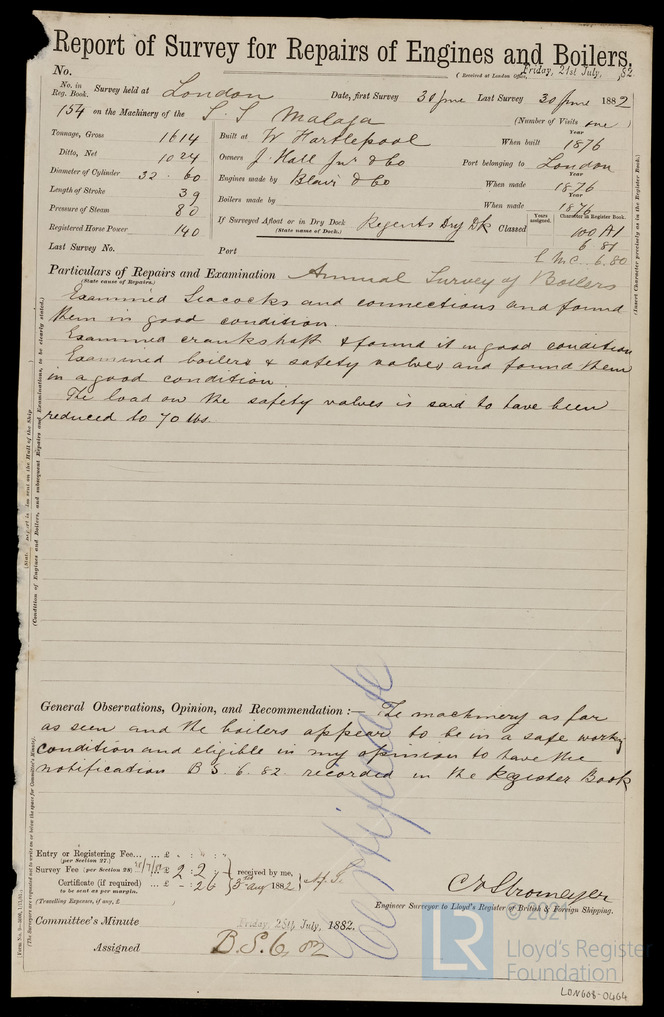 Report of Survey for Repairs of Engines and Boilers.
No. (Received at London Office, Friday, 21st July, 82
No. in Reg. Book. Survey held at London Date, first Survey 30 June Last Survey 30 June 1882
154 on the Machinery of the S.S. Malaga (Number of Visits one)
Tonnage, Gross 1614 Built at W Hartlepool When built Year 1876
Ditto, Net 1024 Owners J. Hall Junr & Co Port belonging to London
Diameter of Cylinder 32. 60 Engines made by Blair & Co When made Year 1876
Length of Stroke 39 Boilers made by When made Year 1876
Pressure of Steam 80 If Surveyed Afloat or in Dry Dock Regents Dry Dk Classed Years assigned. Character in Register Book. 100 A1
(State name of Dock.)
Registered Horse Power 140 6 81
Last Survey No. Port L.M.C. 6.80
Particulars of Repairs and Examination Annual Survey of Boilers
(State cause of Repairs.)
Examined Seacocks and connections and found
them in good condition.
Examined crankshaft & found it in good condition
Examined boilers & safety valves and found them
in a good condition.
The load on the safety valves is said to have been
reduced to 70 lbs.
(Insert Character precisely as in the Register Book.)
(Condition of Engines and Boilers, and subsequent Repairs and Examinations, to be clearly stated.)
General Observations, Opinion, and Recommendation :— The machinery as far
as seen and the boilers appear to be in a safe working
condition and eligible in my opinion to have the
notification B.S. 6. 82. recorded in the Register Book
Certificate
(The Surveyors are requested not to write on or below the space for Committee's Minute.)
Entry or Registering Fee... ... £ : :
(per Section 27.)
Survey Fee (per Section 28) £ 2 : 2 : received by me,
Certificate (if required) ... £ - : 2 6 3 Aug 1882
to be sent as per margin.
(Travelling Expenses, if any, £
C E Stromeyer
Engineer Surveyor to Lloyd's Register of British & Foreign Shipping.
Committee's Minute Friday, 28th July, 1882.
Assigned B.S. 6, 82
© 2021
LR Lloyd's Register
Foundation
LON608-0464